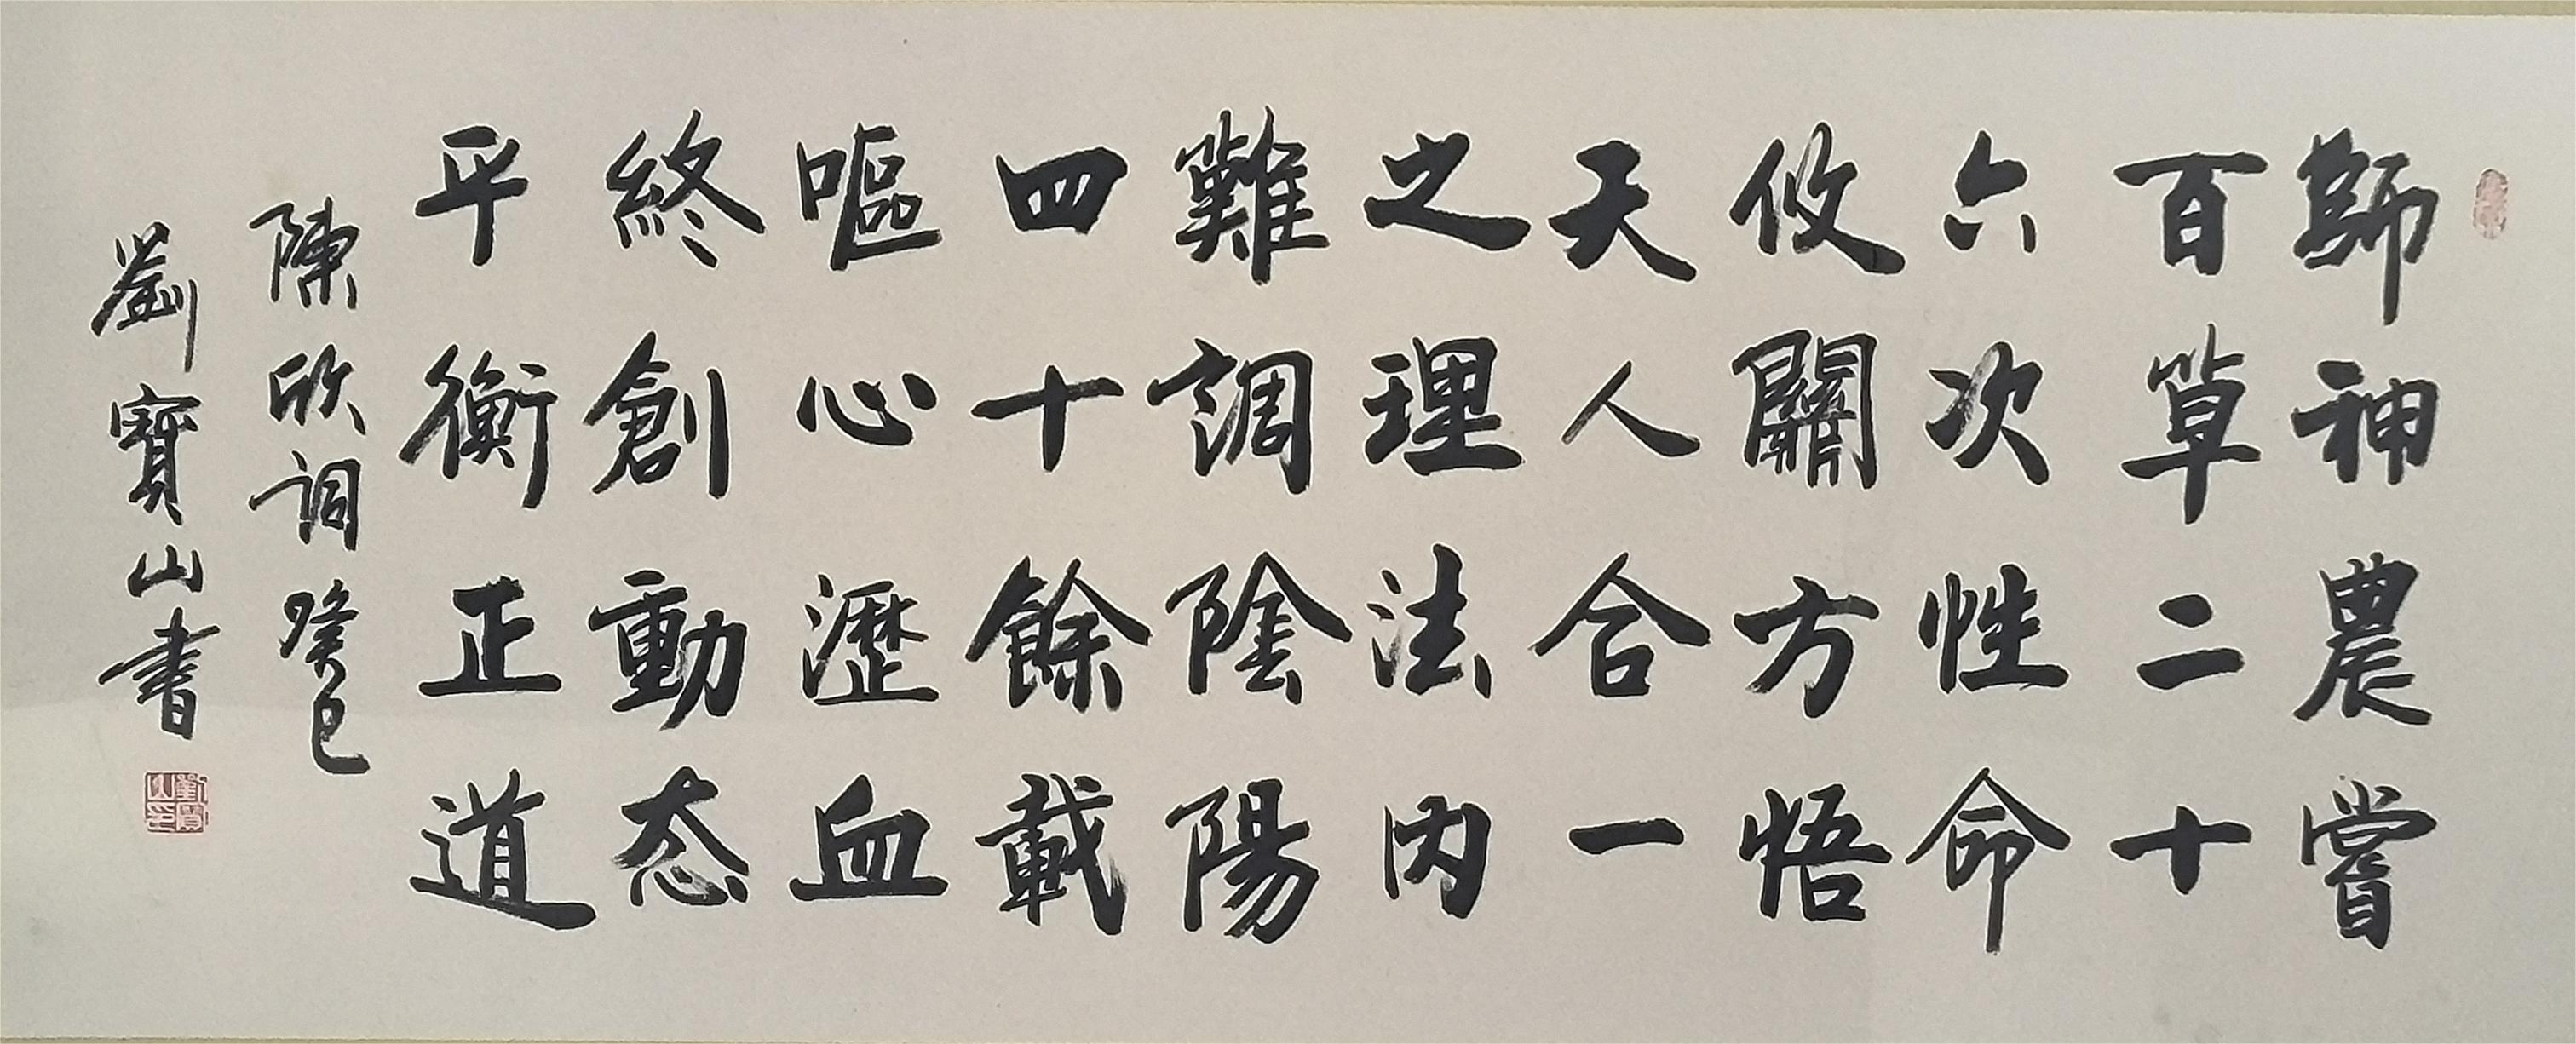 師神農嘗
百草二十
六次性命
攸關方悟
天人合一
之理法內
難調陰陽
四十餘載
嘔心瀝血
終創動态
平衡正道
陳欣詞癸巳
劉寶山書